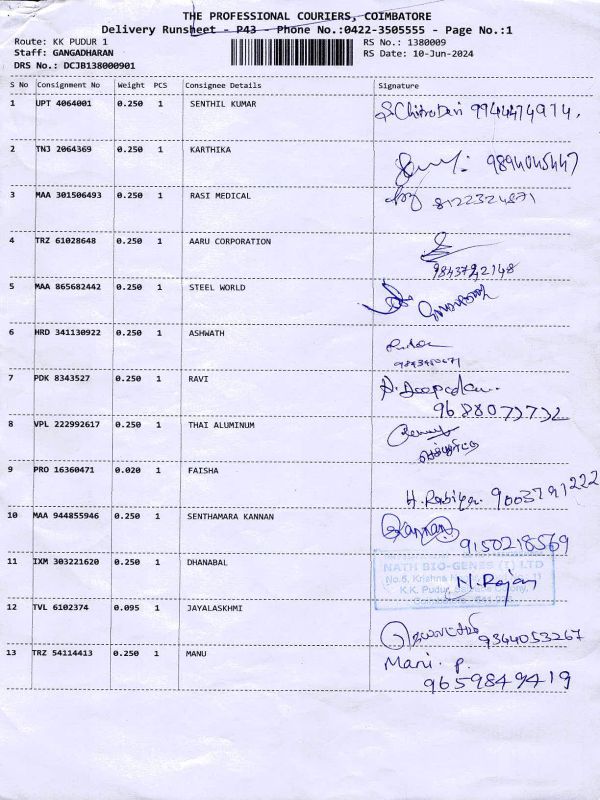 THE PROFESSIONAL COURIERS, COIMBATORE
Delivery Runsheet - P43 - Phone No.:0422-3505555 - Page No.:1
Route: KK PUDUR 1
RS No.: 1380009
Staff: GANGADHARAN
RS Date: 10-Jun-2024
DRS No.: DCJB138000901
S No Consignment No Weight PCS Consignee Details Signature
1 UPT 4064001 0.250 1 SENTHIL KUMAR S. Chitra Devi 9944474974.
2 TNJ 2064369 0.250 1 KARTHIKA 9894045447
3 MAA 301506493 0.250 1 RASI MEDICAL 8122324871
4 TRZ 61028648 0.250 1 AARU CORPORATION
9843722148
5 MAA 865682442 0.250 1 STEEL WORLD
6 HRD 341130922 0.250 1 ASHWATH
7 PDK 8343527 0.250 1 RAVI
9688073732
8 VPL 222992617 0.250 1 THAI ALUMINUM
9 PRO 16360471 0.020 1 FAISHA
H. Rabiya. 9003791222
10 MAA 944855946 0.250 1 SENTHAMARA KANNAN Kannan
9150218569
11 IXM 303221620 0.250 1 DHANABAL NATH BIO-GENES (I) LTD
No.5, Krishna N. Rajan 11
K.K. Pudur,
12 TVL 6102374 0.095 1 JAYALASKHMI
9344053267
13 TRZ 54114413 0.250 1 MANU Mani. P.
9659849419